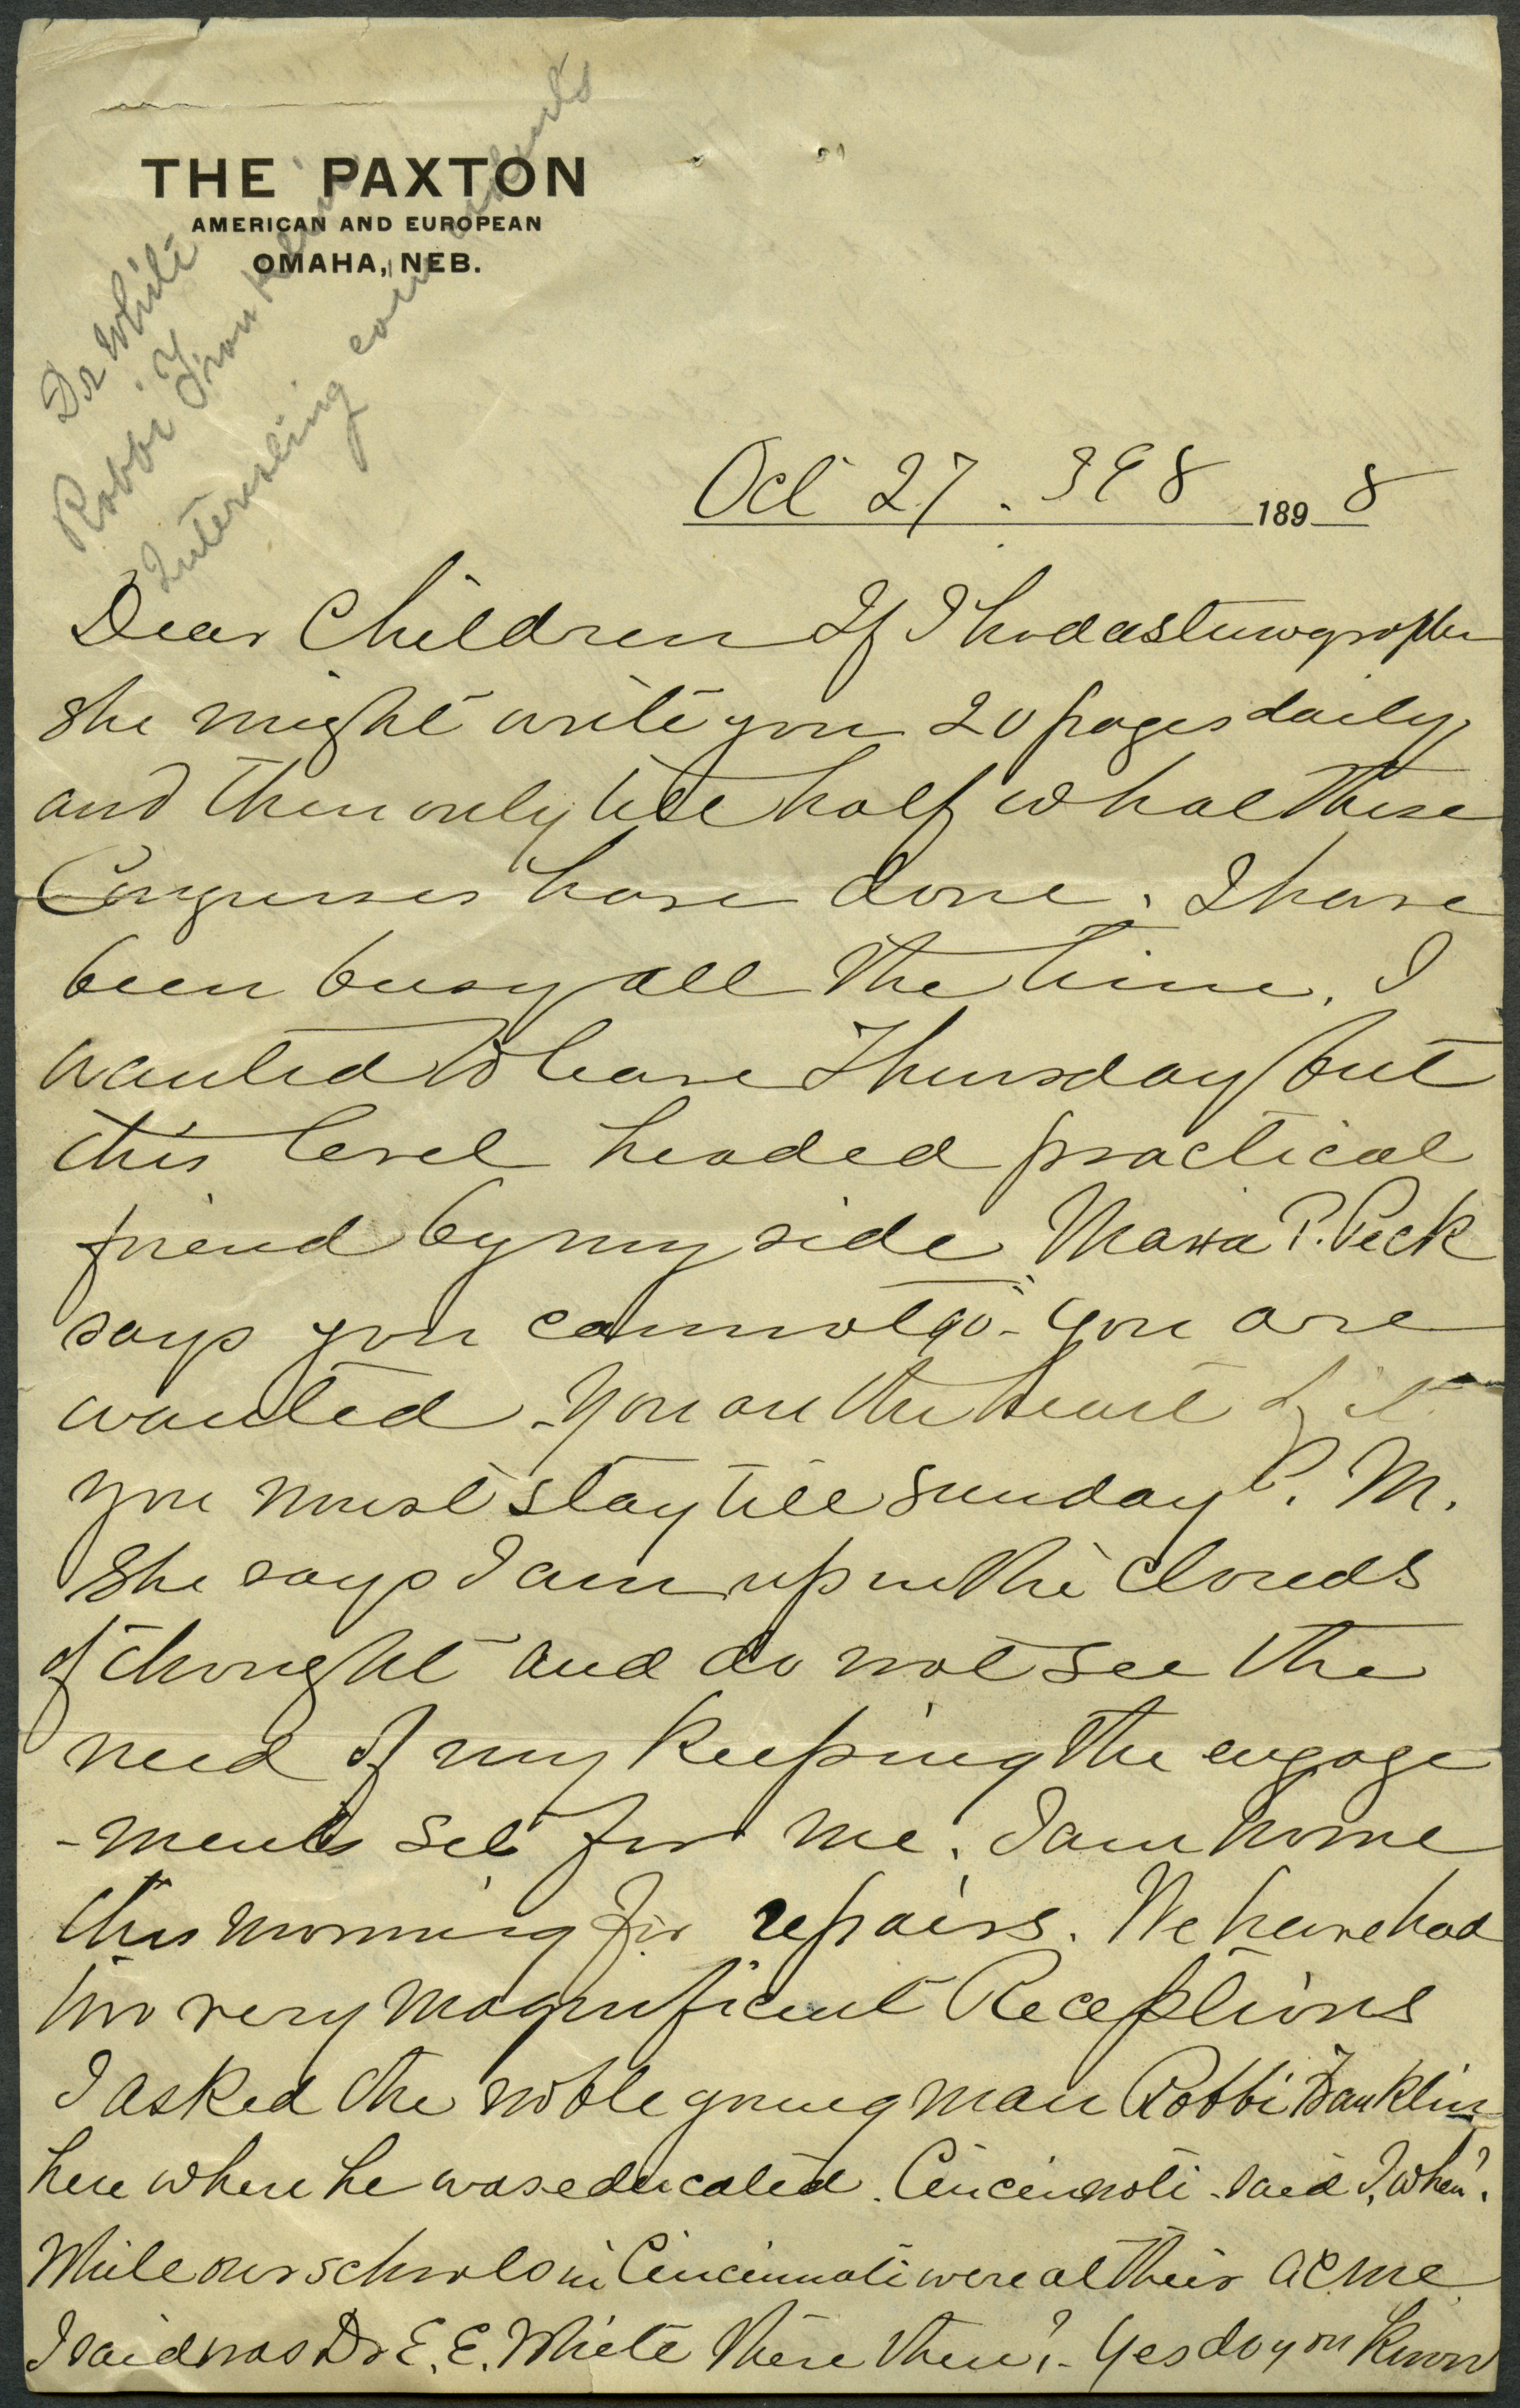 THE PAXTON
AMERICAN AND EUROPEAN
OMAHA, NEB.
Dr White
Rabbi Franklin
Interesting comments
Oct 27. 398 1898
Dear Children If I had a stenographer
she might write you 20 pages daily
and then only tell half what these
Congresses have done. I have
been busy all the time. I
wanted to leave Thursday but
this level headed practical
friend by my side Maria P. Peck
says you cannot go - you are
wanted - you are the heart of it
you must stay till Sunday P. M.
She says I am up in the clouds
of thought and do not see the
need of my keeping the engage
-ments set for me. I am home
this morning for repairs. We have had
two very magnificent Receptions
I asked the noble young man Rabbi Franklin
here where he was educated. Cincinnati - said I, when?
While our schools in Cincinnati were at their acme
I said was Dr E. E. White there then? - Yes do you know